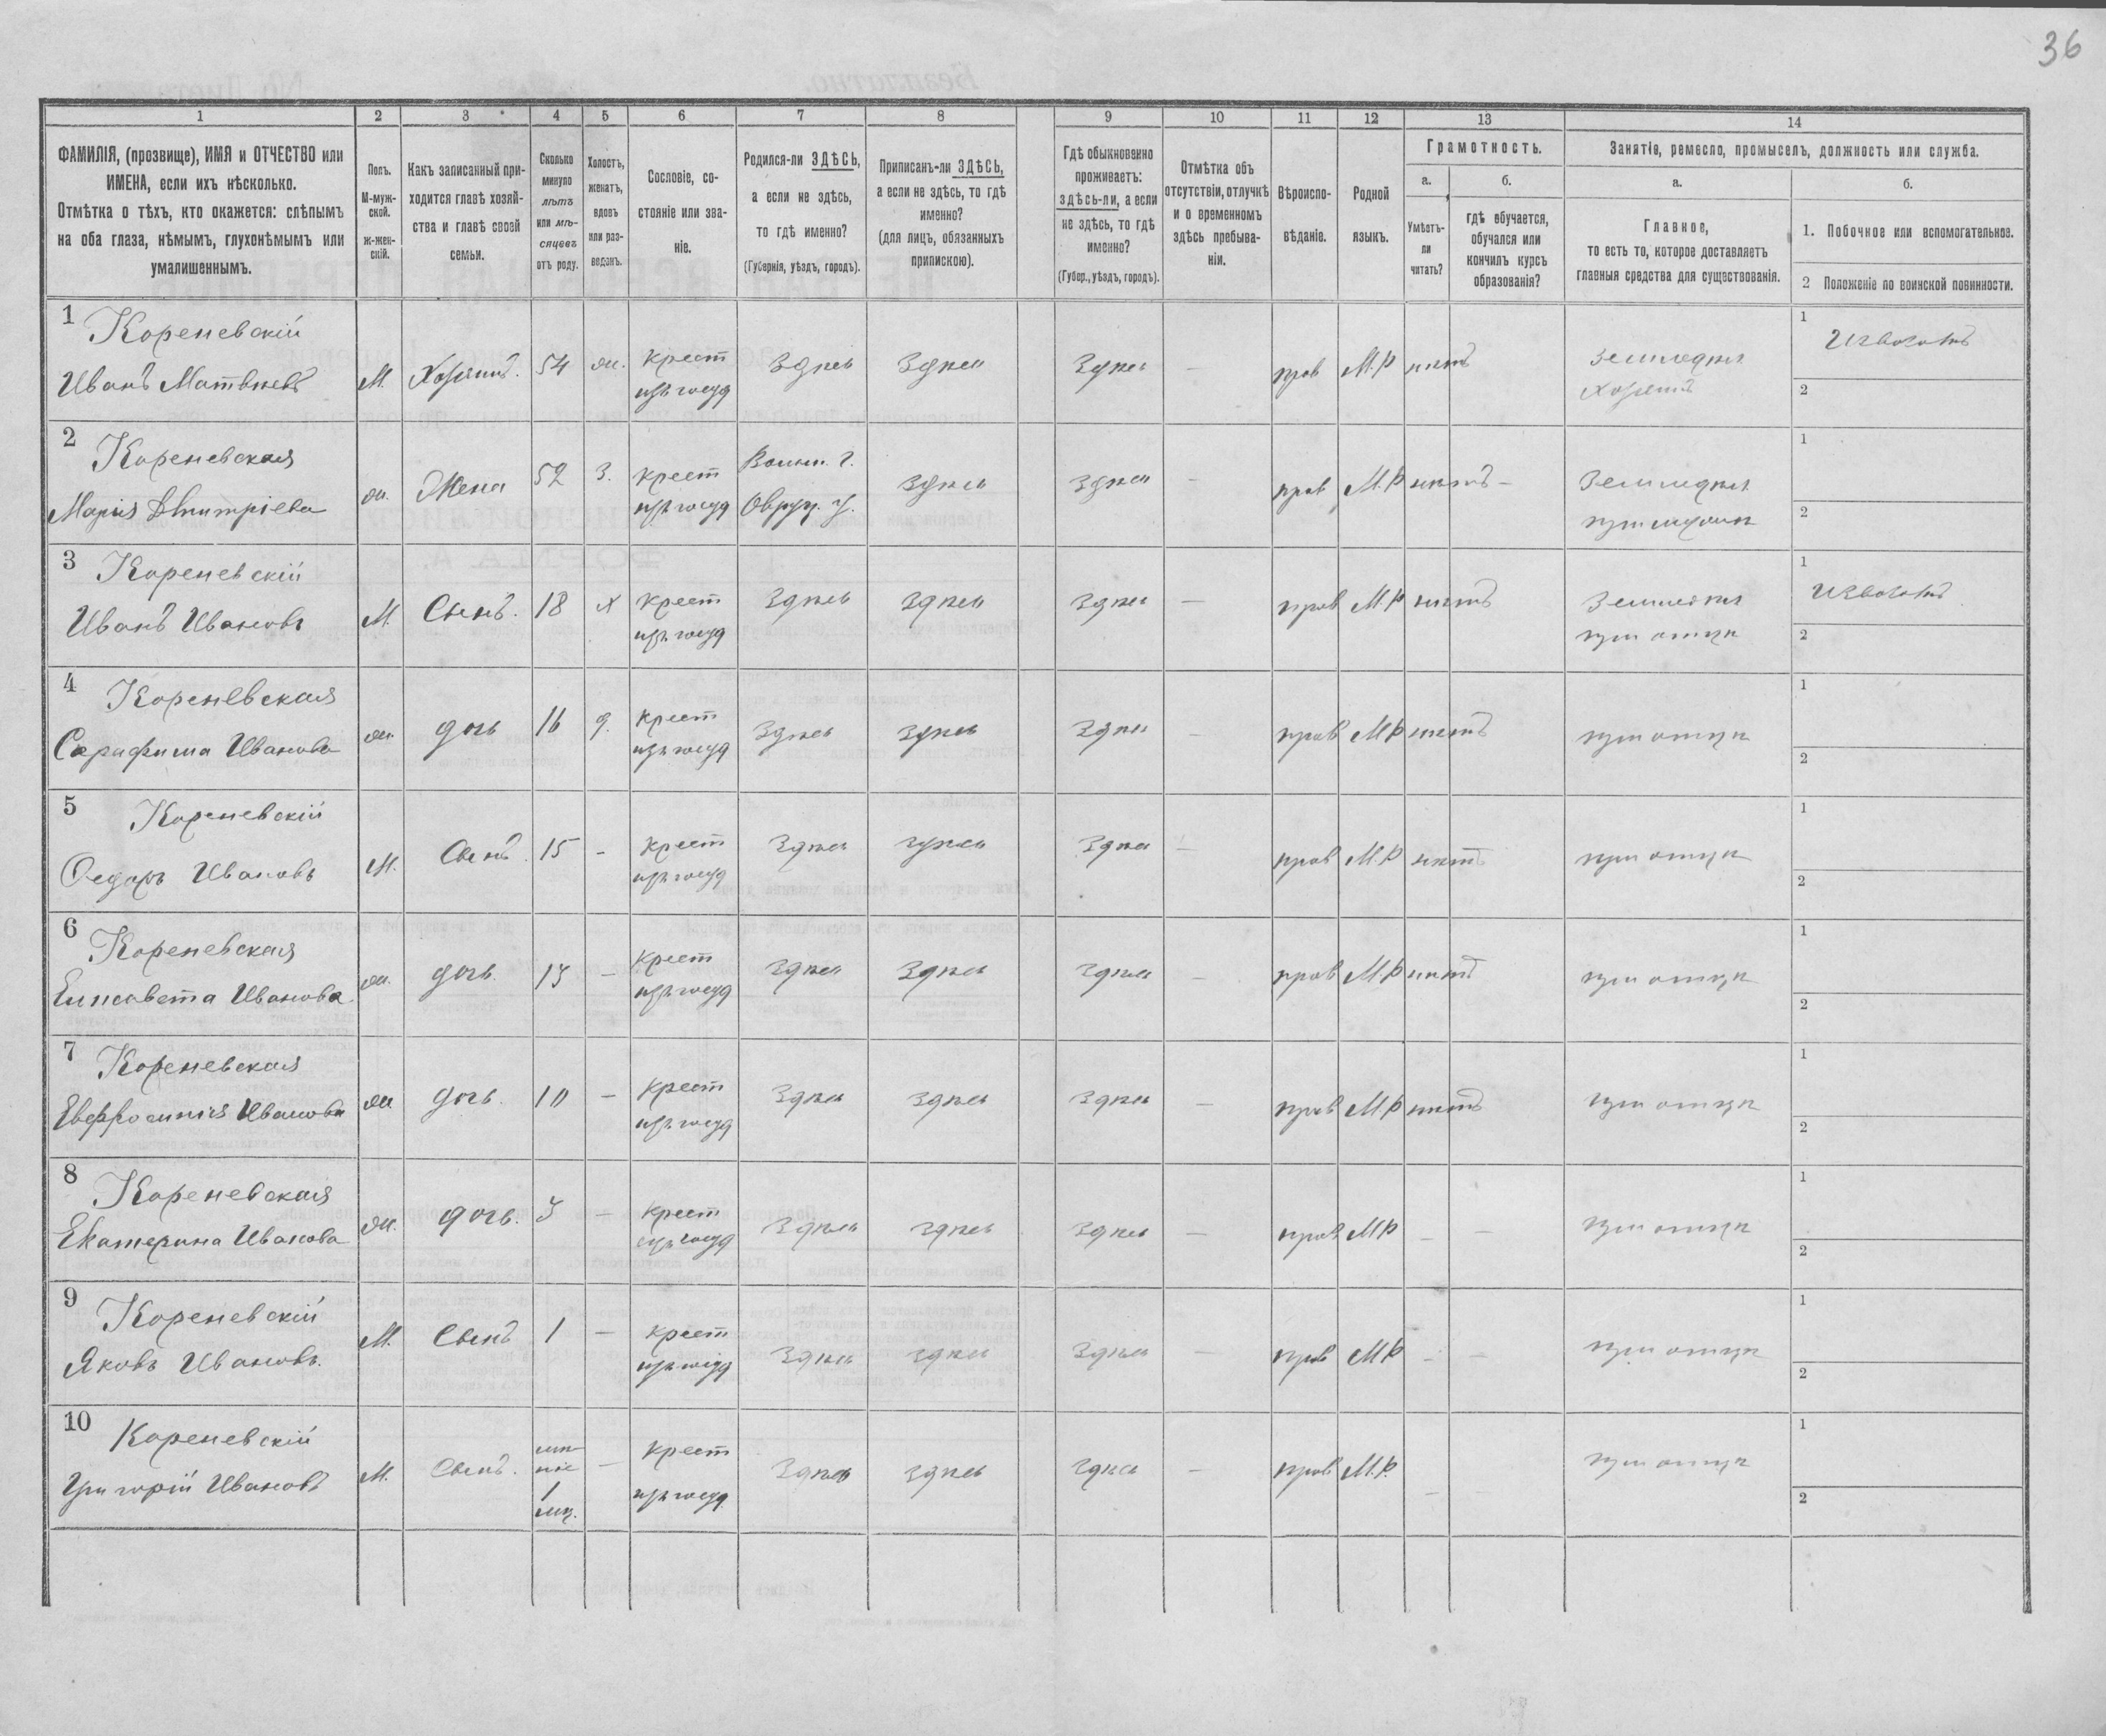 36
1
2
3
4
5
6
7
8
9
10
11
12
13
14
ФАМИЛІЯ, (прозвище), ИМЯ и ОТЧЕСТВО или
ИМЕНА, если ихъ нѣсколько.
Отмѣтка о тѣхъ, кто окажется: слѣпымъ
на оба глаза, нѣмымъ, глухонѣмымъ или
умалишеннымъ.
Полъ.
М-муж-
ской.
ж-жен-
скій.
Какъ записанный при-
ходится главѣ хозяй-
ства и главѣ своей
семьи.
Сколько
минуло
лѣтъ
или мѣ-
сяцевъ
отъ роду.
Холостъ,
женатъ,
вдовъ
или раз-
веденъ.
Сословіе, со-
стояніе или зва-
ніе.
Родился-ли ЗДѢСЬ,
а если не здѣсь,
то гдѣ именно?
(Губернія, уѣздъ, городъ).
Приписанъ-ли ЗДѢСЬ,
а если не здѣсь, то гдѣ
именно?
(для лицъ, обязанныхъ
припискою).
Гдѣ обыкновенно
проживаетъ:
ЗДѢСЬ-ЛИ, а если
не здѣсь, то гдѣ
именно?
(Губер., уѣздъ, городъ).
Отмѣтка объ
отсутствіи, отлучкѣ
и о временномъ
здѣсь пребыва-
ніи.
Вѣроиспо-
вѣданіе.
Родной
языкъ.
Грамотность.
а.
Умѣетъ-
ли
читать?
б.
гдѣ обучается,
обучался или
кончилъ курсъ
образованія?
Занятіе, ремесло, промыселъ, должность или служба.
а.
Главное,
то есть то, которое доставляетъ
главныя средства для существованія.
б.
1. Побочное или вспомогательное.
2 Положеніе по воинской повинности.
1 Кореневскій
Иванъ Матвѣевъ
М. Хозяинъ. 54 ж. крест
изъ госуд
Здѣсь Здѣсь Здѣсь — прав М.Р нѣтъ
Земледѣл
Хозяинъ
1 Извозъ
2
2 Кореневская
Марія Дмитріева
ж. Жена 52 З. крест
изъ госуд
Волын. г.
Овруч. у.
Здѣсь Здѣсь — прав М.Р нѣтъ —
Земледѣл
1
2
3 Кореневскій
Иванъ Ивановъ
М. Сынъ. 18 х крест
изъ госуд
Здѣсь Здѣсь Здѣсь — прав М.Р нѣтъ
Земледѣл
при отцѣ
1
2
4 Кореневская
Серафима Иванова
ж. дочь 16 д. крест
изъ госуд
Здѣсь Здѣсь Здѣсь — прав МР нѣтъ
при отцѣ
1
2
5 Кореневскій
Ѳедоръ Ивановъ
М. Сынъ. 15 – крест
изъ госуд
Здѣсь Здѣсь Здѣсь — прав М.Р нѣтъ
при отцѣ
1
2
6 Кореневская
Елисавета Иванова
ж. дочь 13 — крест
изъ госуд
Здѣсь Здѣсь Здѣсь — прав М.Р нѣтъ
при отцѣ
1
2
7 Кореневская
Евфросинія Иванова
ж дочь. 10 — крест
изъ госуд
Здѣсь Здѣсь Здѣсь — прав М.Р нѣтъ
при отцѣ
1
2
8 Кореневская
Екатерина Иванова
ж. дочь. 3 — крест
изъ госуд
Здѣсь Здѣсь Здѣсь — прав МР — —
при отцѣ
1
2
9 Кореневскій
Яковъ Ивановъ.
М. Сынъ 1 — крест
изъ госуд
Здѣсь Здѣсь Здѣсь — прав МР — —
при отцѣ
1
2
10 Кореневскій
Григорій Ивановъ
М. Сынъ. 1
мц. — крест
изъ госуд
Здѣсь Здѣсь Здѣсь — прав М.Р. — —
при отцѣ
1
2